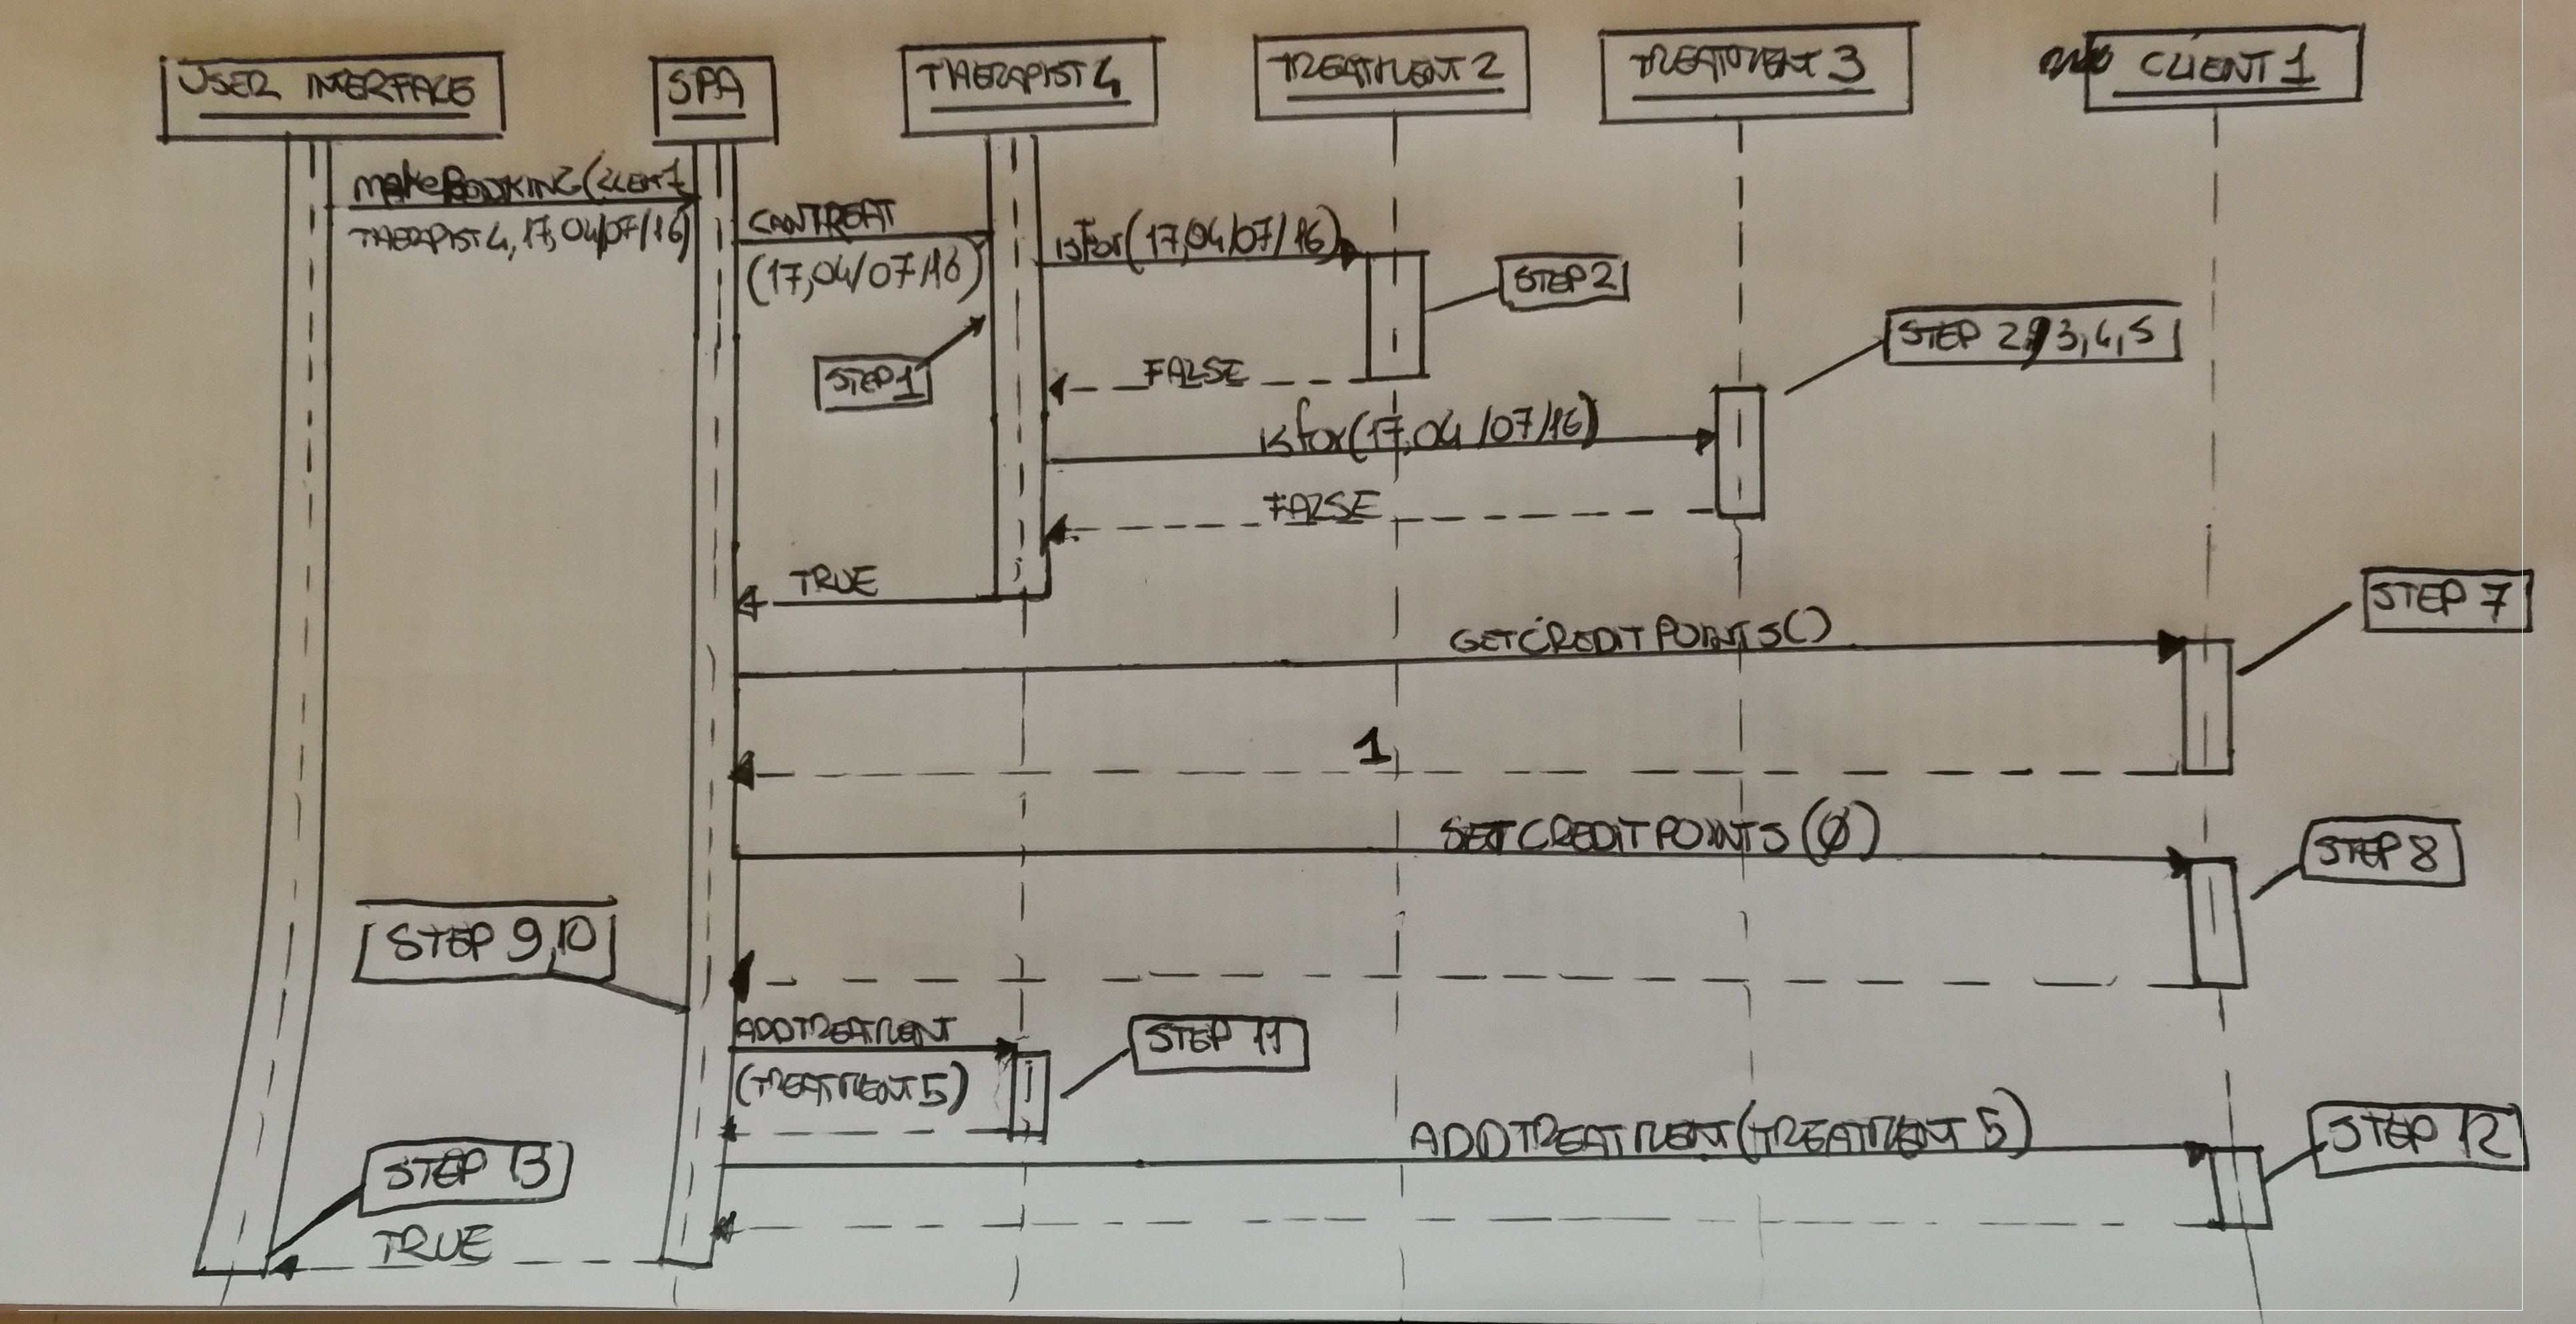 USER INTERFACE
SPA
THERAPIST 4
TREATMENT 2
TREATMENT 3
CLIENT 1
makeBOOKING(CLIENT1,
THERAPIST 4, 17, 04/07/16)
CANTREAT
(17,04/07/16)
isFor(17,04/07/16)
STEP 2
STEP 1
STEP 2,3,4,5
FALSE
isfor(17,04/07/16)
FALSE
TRUE
GETCREDITPOINTS()
STEP 7
1
SETCREDITPOINTS(Ø)
STEP 8
STEP 9,10
ADDTREATMENT
(TREATMENT 5)
STEP 11
ADDTREATMENT(TREATMENT 5)
STEP 12
STEP 13
TRUE